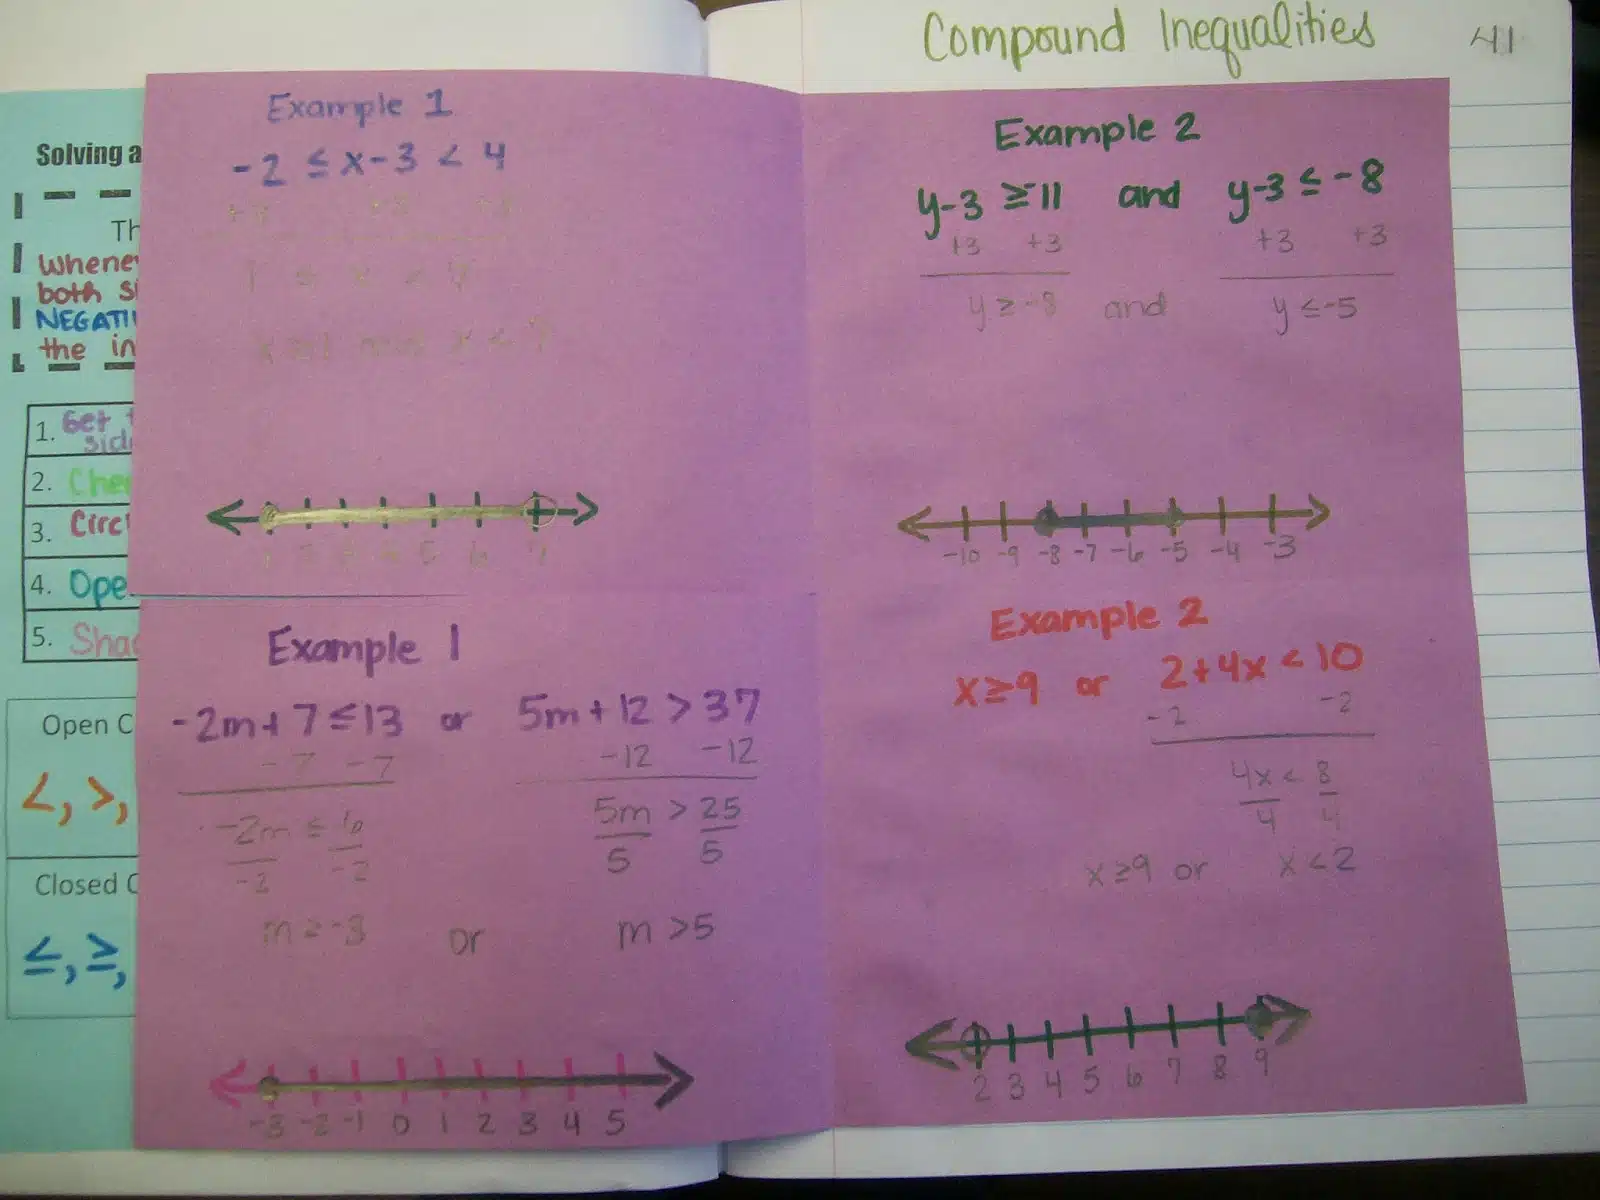 Compound Inequalities 41
Solving a
Th
Whenev
both si
NEGATI
the in
1. Get t
side
2. Chec
3. Circl
4. Ope
5. Shad
Open C
<, >,
Closed C
≤, ≥,
Example 1
-2 ≤ x-3 < 4
+3 +3 +3
1 ≤ x < 7
x ≥ 1 and x < 7
1 2 3 4 5 6 7
Example 2
y-3 ≥ -11 and y-3 ≤ -8
+3 +3 +3 +3
y ≥ -8 and y ≤ -5
-10 -9 -8 -7 -6 -5 -4 -3
Example 1
-2m+7 ≤ 13 or 5m+12 > 37
-7 -7 -12 -12
-2m ≤ 6 5m > 25
-2 -2 5 5
m ≥ -3 or m > 5
-3 -2 -1 0 1 2 3 4 5
Example 2
x ≥ 9 or 2+4x < 10
-2 -2
4x < 8
4 4
x ≥ 9 or x < 2
2 3 4 5 6 7 8 9